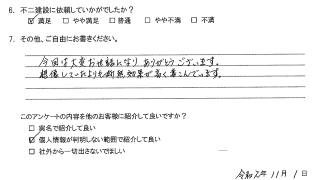 6. 不二建設に依頼していかがでしたか?
☑ 満足 □ やや満足 □ 普通 □ やや不満 □ 不満
7. その他、ご自由にお書きください。
今回は大変お世話になり ありがとうございます。
想像していたよりも断熱効果が高く喜んでいます。
このアンケートの内容を他のお客様に紹介して良いですか?
□ 実名で紹介して良い
☑ 個人情報が判明しない範囲で紹介して良い
□ 社外から一切出さないでほしい
令和元年 11月 1日